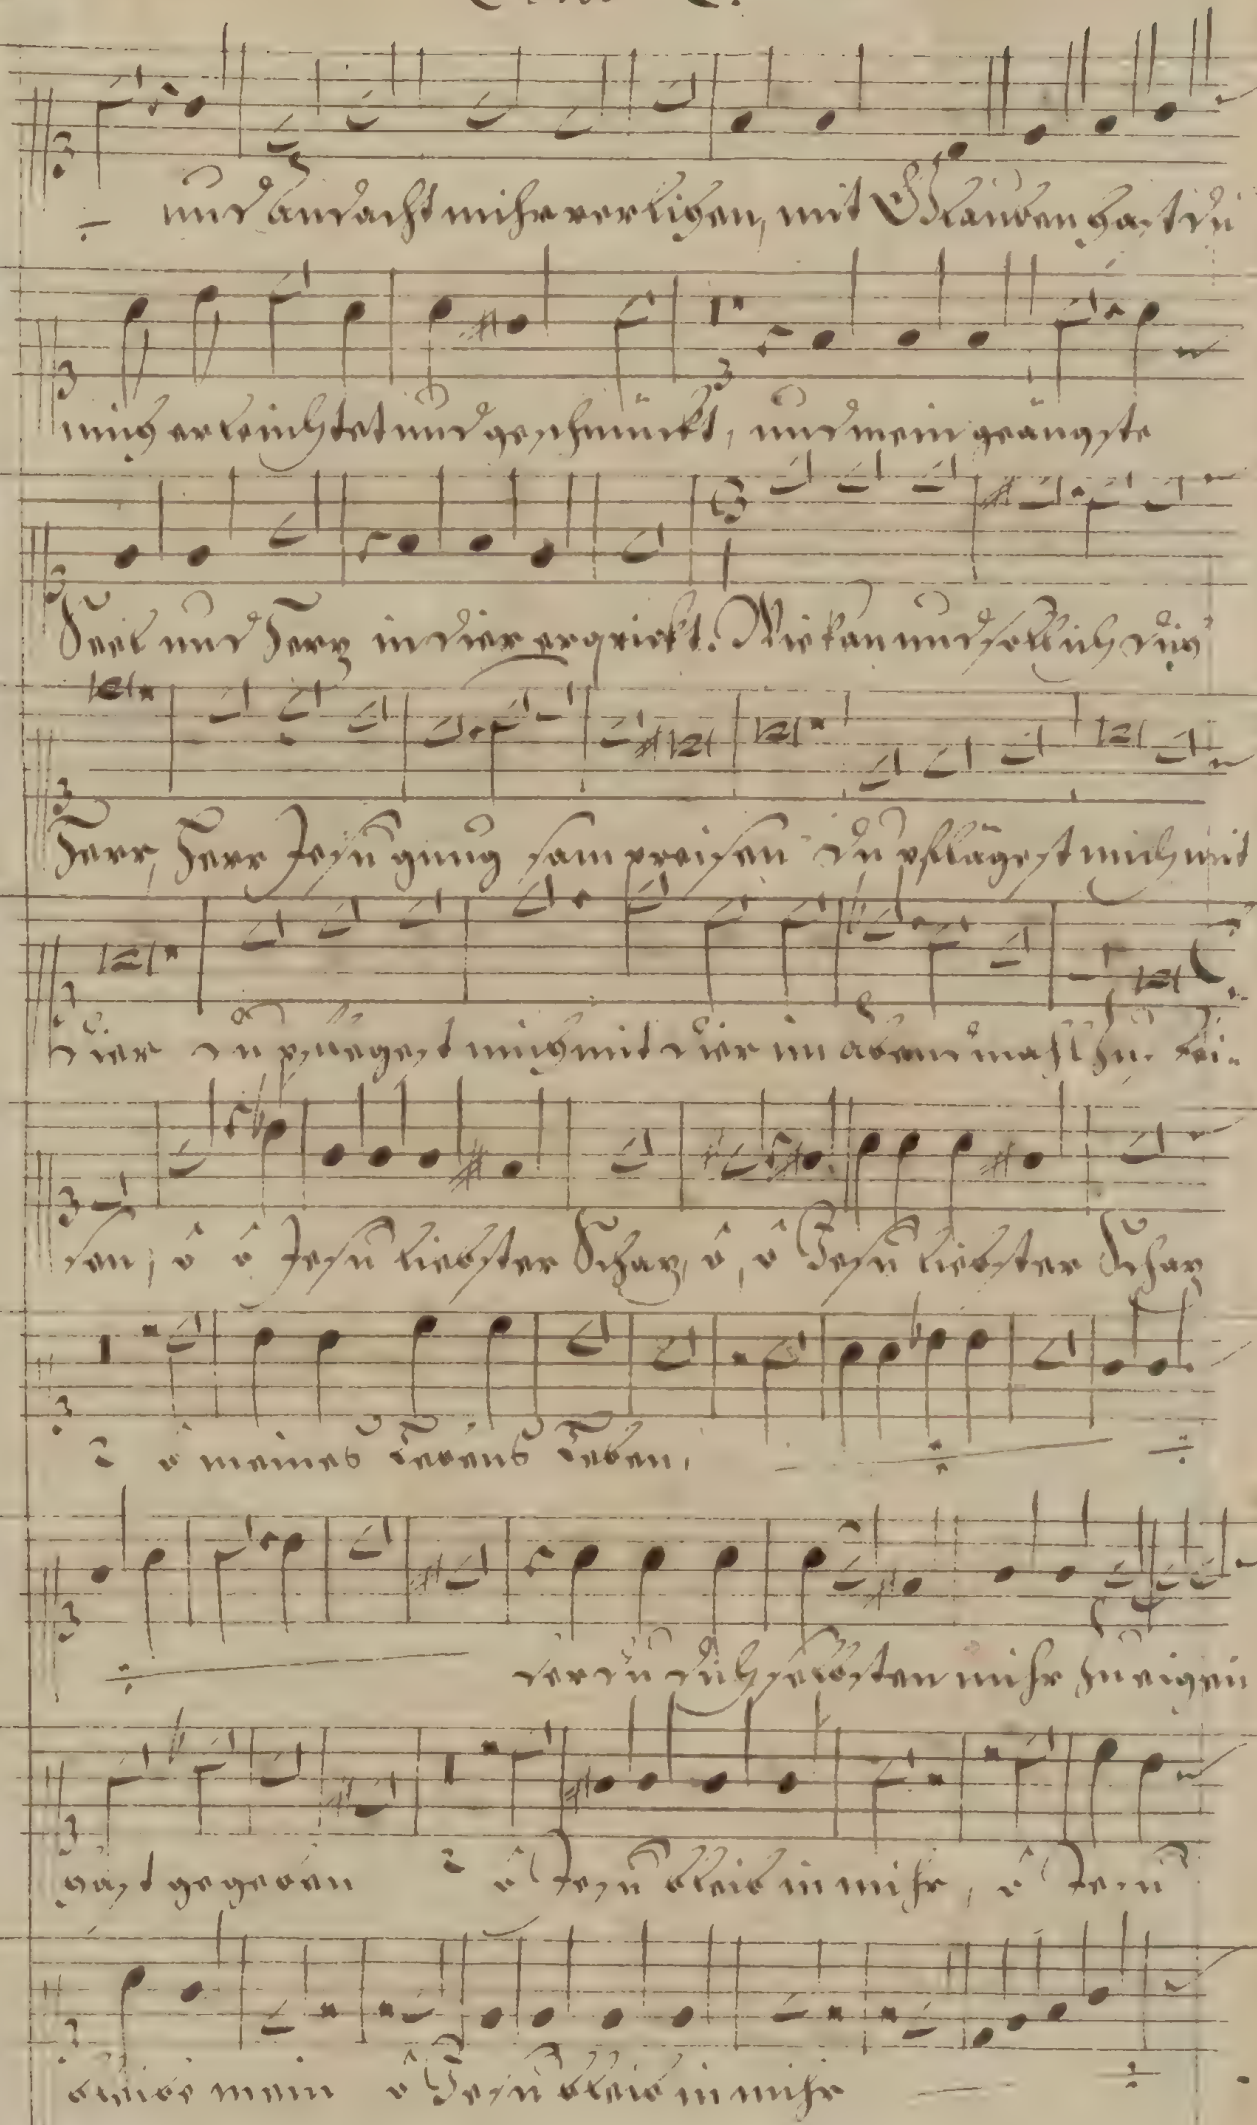 und andacht mihr verlihen, mit Glauben hast du
mich erleuchtet und geschmückt, und mein geängste
Seel und Herz in dier erquickt. Wie kan und soll ich dich
Herr, Herr Jesu gnug sam preisen du pflägest mich mit
dier du pflegest mich mit dier im abendmahl zu spei-
sen, ô ô Jesu liebster Schaz, ô, ô Jesu liebster Schaz
2 ô meines Lebens Leben,
der du dich selbsten mihr zu eigen
hast gegeben 2 ô Jesu bleib in mihr, ô Jesu
bleibe mein ô Jesu bleib in mihr